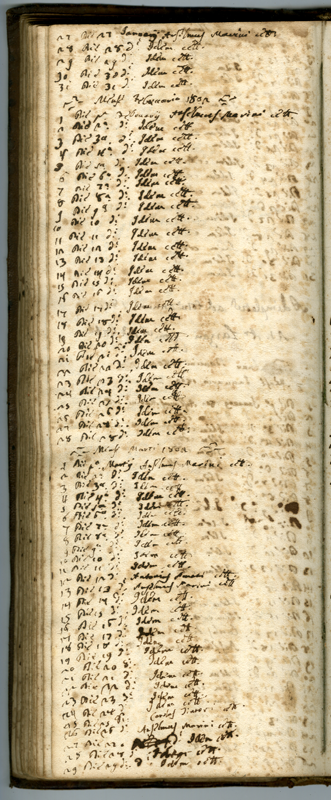 27 Die 27 January Anselmus Marini cett.
28 Die 28 d: Idem cett.
29 Die 29 d: Idem cett.
30 Die 30 d: Idem cett.
31 Die 31 d: Idem cett.
Mensis February 1802
1 Die p: February Anselmus Marini cett.
2 Die 2 d: Idem cett.
3 Die 3 d: Idem cett.
4 Die 4 d: Idem cett.
5 Die 5 d: Idem cett.
6 Die 6 d: Idem cett.
7 Die 7 d: Idem cett.
8 Die 8 d: Idem cett.
9 Die 9 d: Idem cett.
10 Die 10 d: Idem cett.
11 Die 11 d: Idem cett.
12 Die 12 d: Idem cett.
13 Die 13 d: Idem cett.
14 Die 14 d: Idem cett.
15 Die 15 d: Idem cett.
16 Die 16 d: Idem cett.
17 Die 17 d: Idem cett.
18 Die 18 d: Idem cett.
19 Die 19 d: Idem cett.
20 Die 20 d: Idem cett.
21 Die 21 d: Idem cett.
22 Die 22 d: Idem cett.
23 Die 23 d: Idem cett.
24 Die 24 d: Idem cett.
25 Die 25 d: Idem cett.
26 Die 26 d: Idem cett.
27 Die 27 d: Idem cett.
28 Die 28 d: Idem cett.
Mensis Marty 1802
1 Die p: Marty Anselmus Marini cett.
2 Die 2 d: Idem cett.
3 Die 3 d: Idem cett.
4 Die 4 d: Idem cett.
5 Die 5 d: Idem cett.
6 Die 6 d: Idem cett.
7 Die 7 d: Idem cett.
8 Die 8 d: Idem cett.
9 Die 9 d: Idem cett.
10 Die 10 d: Idem cett.
11 Die 11 d: Idem cett.
12 Die 12 d: Antonius cett.
13 Die 13 d: Anselmus Marini cett.
14 Die 14 d: Idem cett.
15 Die 15 d: Idem cett.
16 Die 16 d: Idem cett.
17 Die 17 d: Idem cett.
18 Die 18 d: Idem cett.
19 Die 19 d: Idem cett.
20 Die 20 d: Idem cett.
21 Die 21 d: Idem cett.
22 Die 22 d: Idem cett.
23 Die 23 d: Idem cett.
24 Die 24 d: Idem cett.
25 Die 25 d: cett.
26 Die 26 d: Anselmus Marini cett.
27 Die 27 Idem cett.
28 Die 28 d: Idem cett.
29 Die 29 d: Idem cett.